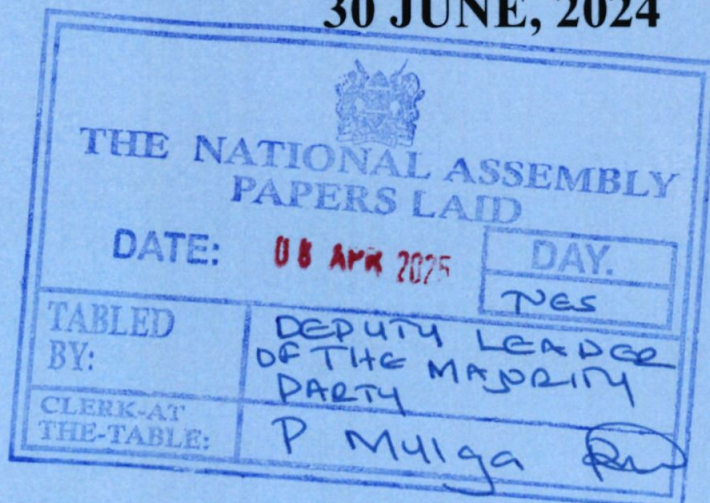 30 JUNE, 2024
THE NATIONAL ASSEMBLY
PAPERS LAID
DATE: 08 APR 2025
DAY.
TUES
TABLED
BY:
DEPUTY LEADER
OF THE MAJORITY
PARTY
CLERK-AT
THE-TABLE:
P